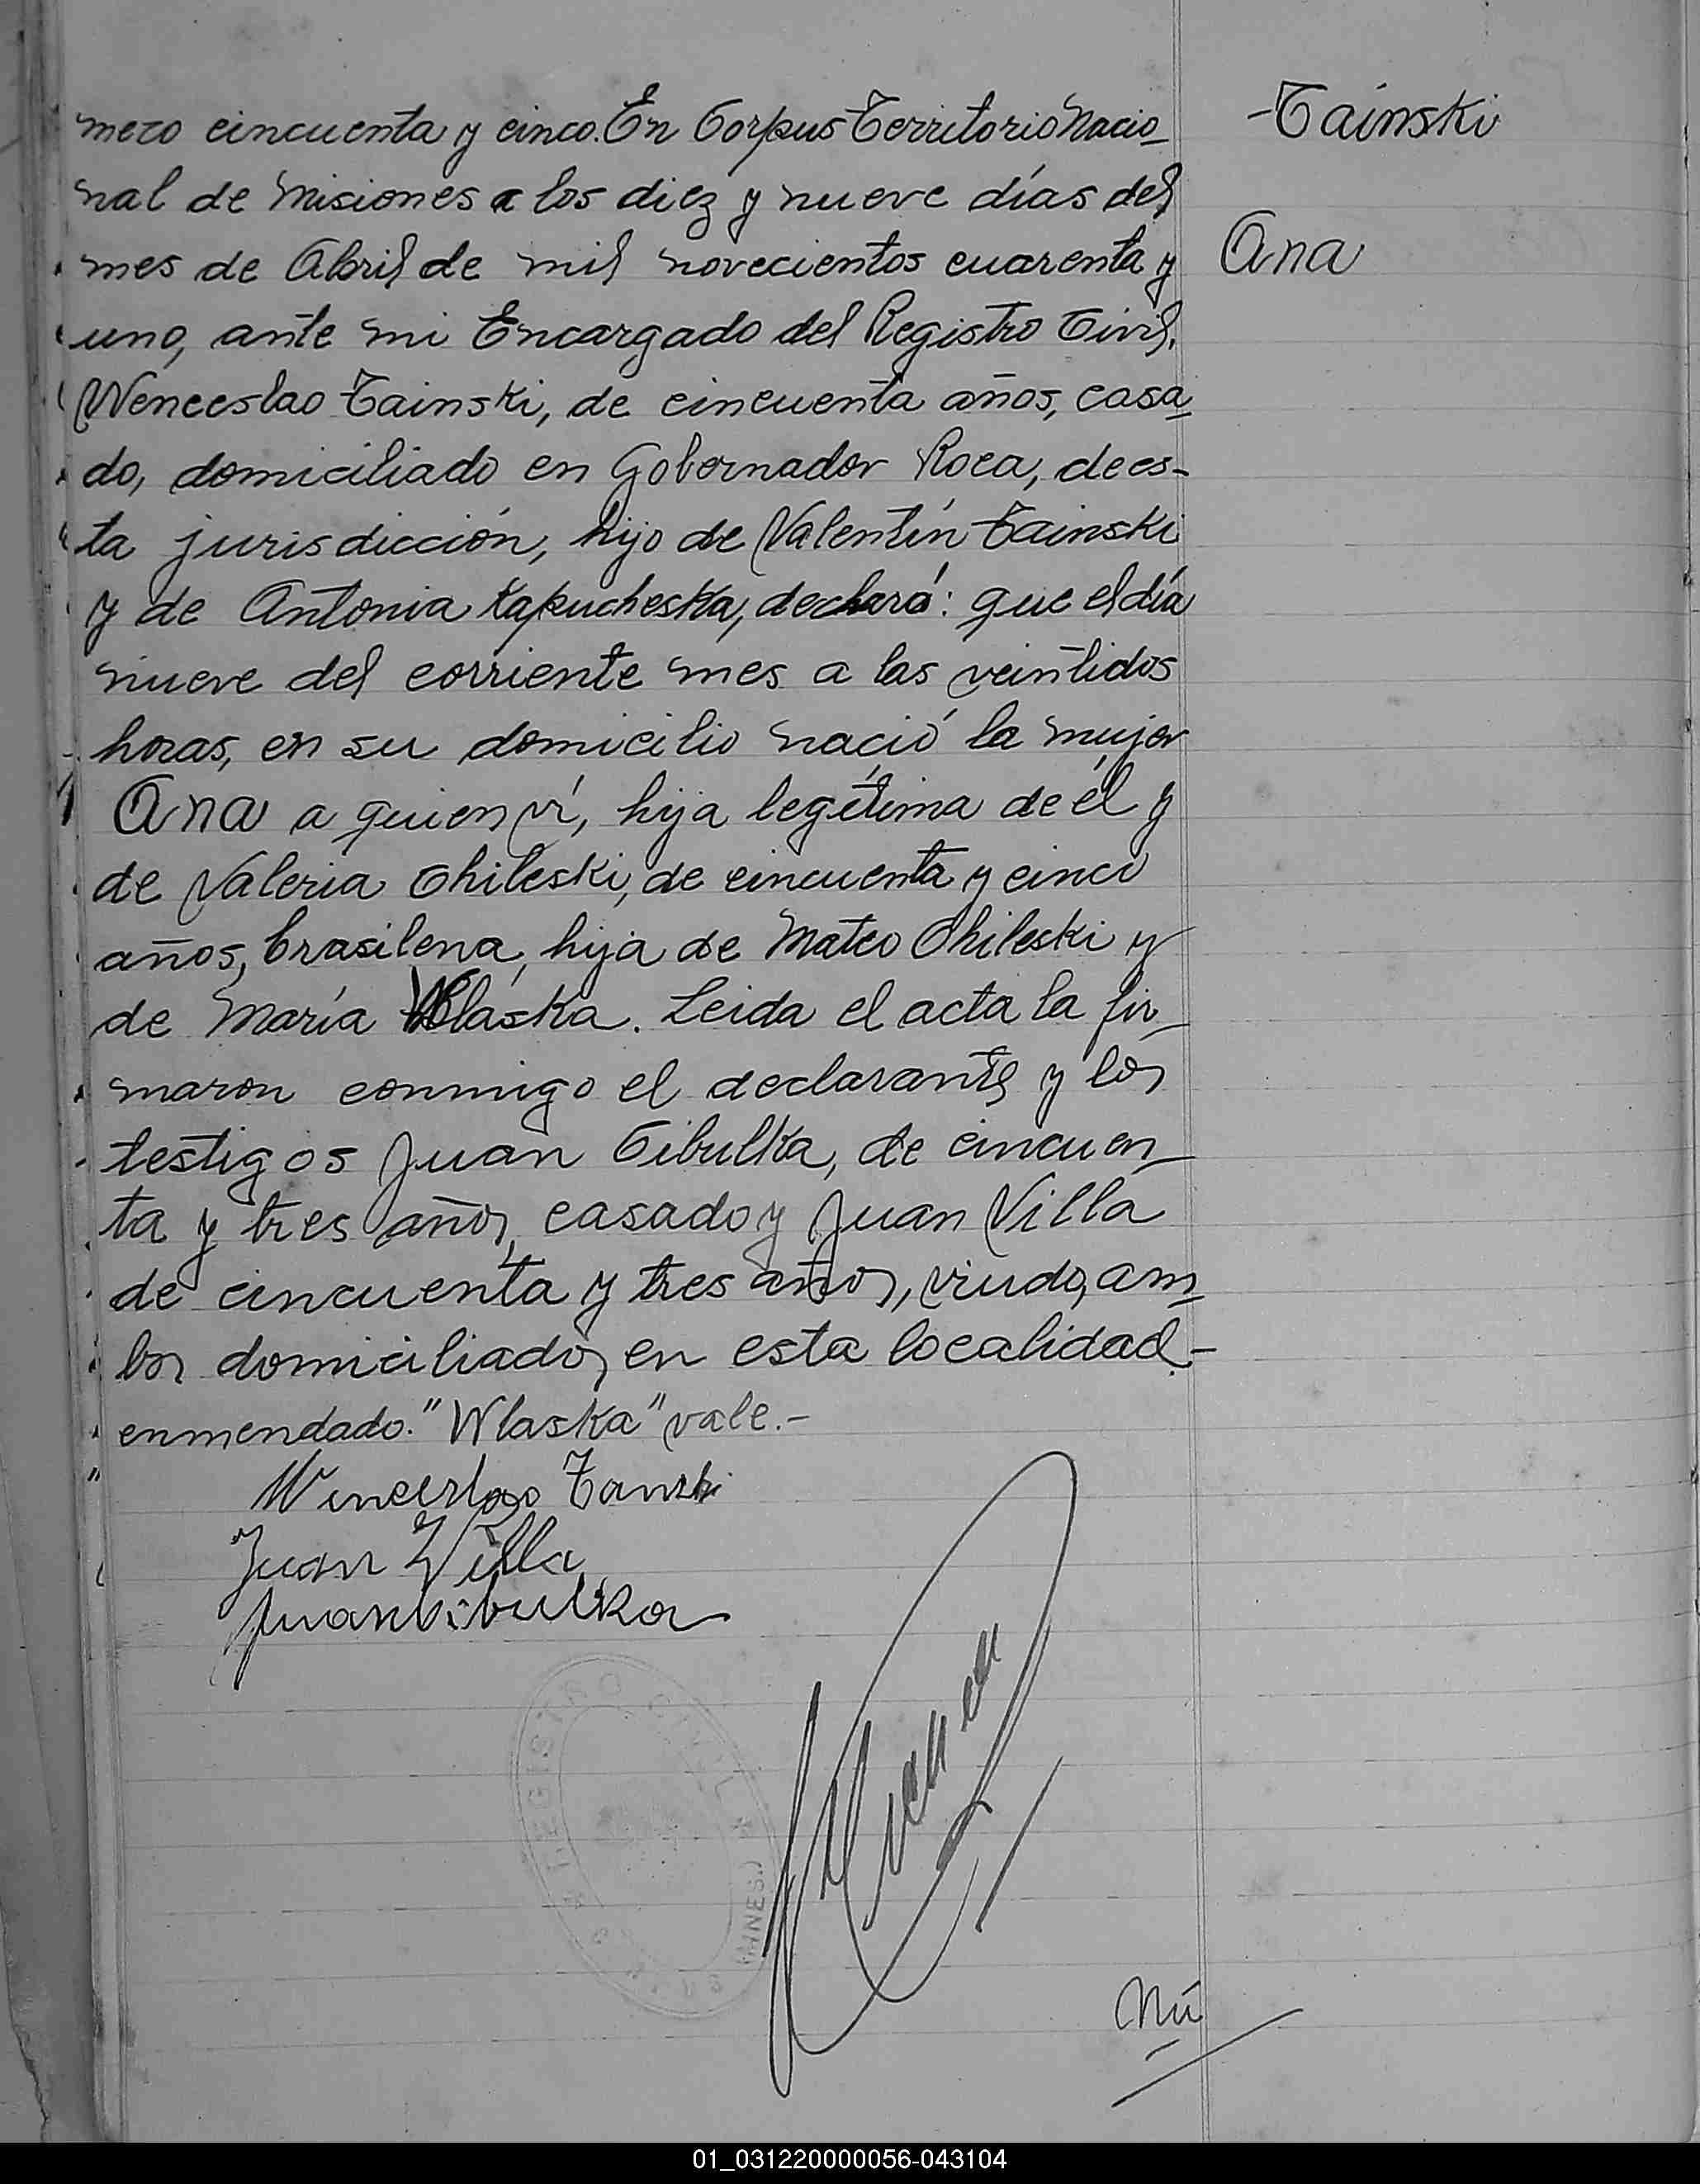 mero cincuenta y cinco. En Corpus Territorio Nacio-
nal de Misiones a los diez y nueve días del
mes de Abril de mil novecientos cuarenta y
uno, ante mi Encargado del Registro Civil,
Wenceslao Tainski, de cincuenta años, casa-
do, domiciliado en Gobernador Roca, de es-
ta jurisdicción, hijo de Valentín Tainski
y de Antonia Kapucheska, declaró: que el día
nueve del corriente mes a las veintidos
horas, en su domicilio nació la mujer
Ana a quien ví, hija legítima de él y
de Valeria Chileski, de cincuenta y cinco
años, brasilena, hija de Mateo Chileski y
de María Wlaska. Leida el acta la fir-
maron conmigo el declarante y los
testigos Juan Cibulka, de cincuen-
ta y tres años, casado y Juan Villa
de cincuenta y tres años, viudo, am-
bos domiciliados en esta localidad.-
enmendado. "Wlaska" vale.-
Wenceslao Tainski
Juan Villa
Juan Cibulka
REGISTRO CIVIL
Nú
-Tainski
Ana
01_031220000056-043104